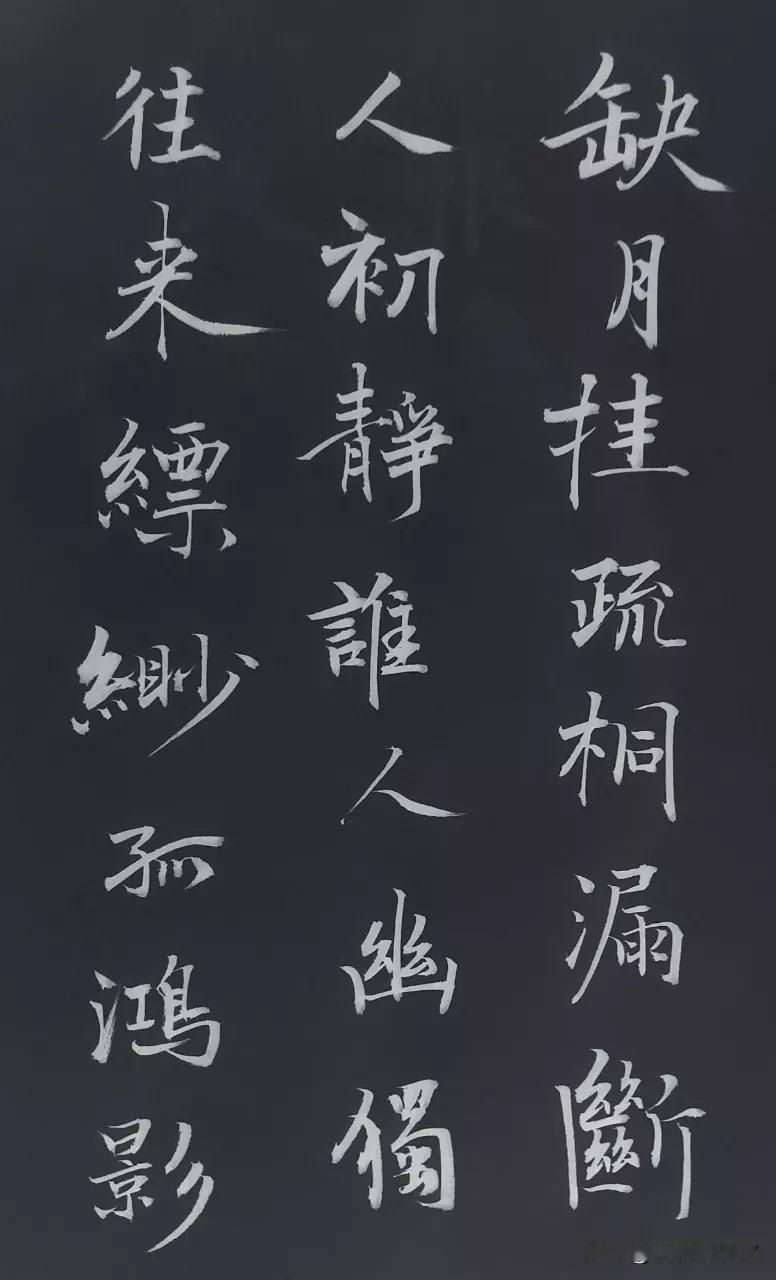 缺月挂疏桐漏斷
人初靜誰人幽獨
往来縹緲孤鴻影